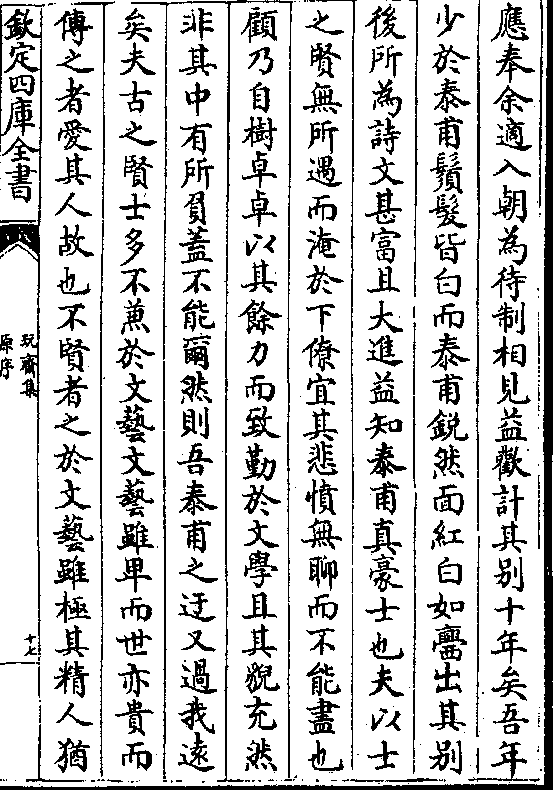 應奉余適入朝為待制相見益歡計其别十年矣吾年
少於泰甫鬚髮皆白而泰甫鋭然面紅白如畵出其别
後所為詩文甚富且大進益知泰甫真豪士也夫以士
之賢無所遇而淹於下僚宜其悲憤無聊而不能盡也
顧乃自樹卓卓以其餘力而致勤於文學且其貌充然
非其中有所負葢不能爾然則吾泰甫之迂又過我逺
矣夫古之賢士多不兼於文藝文藝雖卑而世亦貴而
傳之者愛其人故也不賢者之於文藝雖極其精人猶
欽定四庫全書
玩齋集
原序
十七